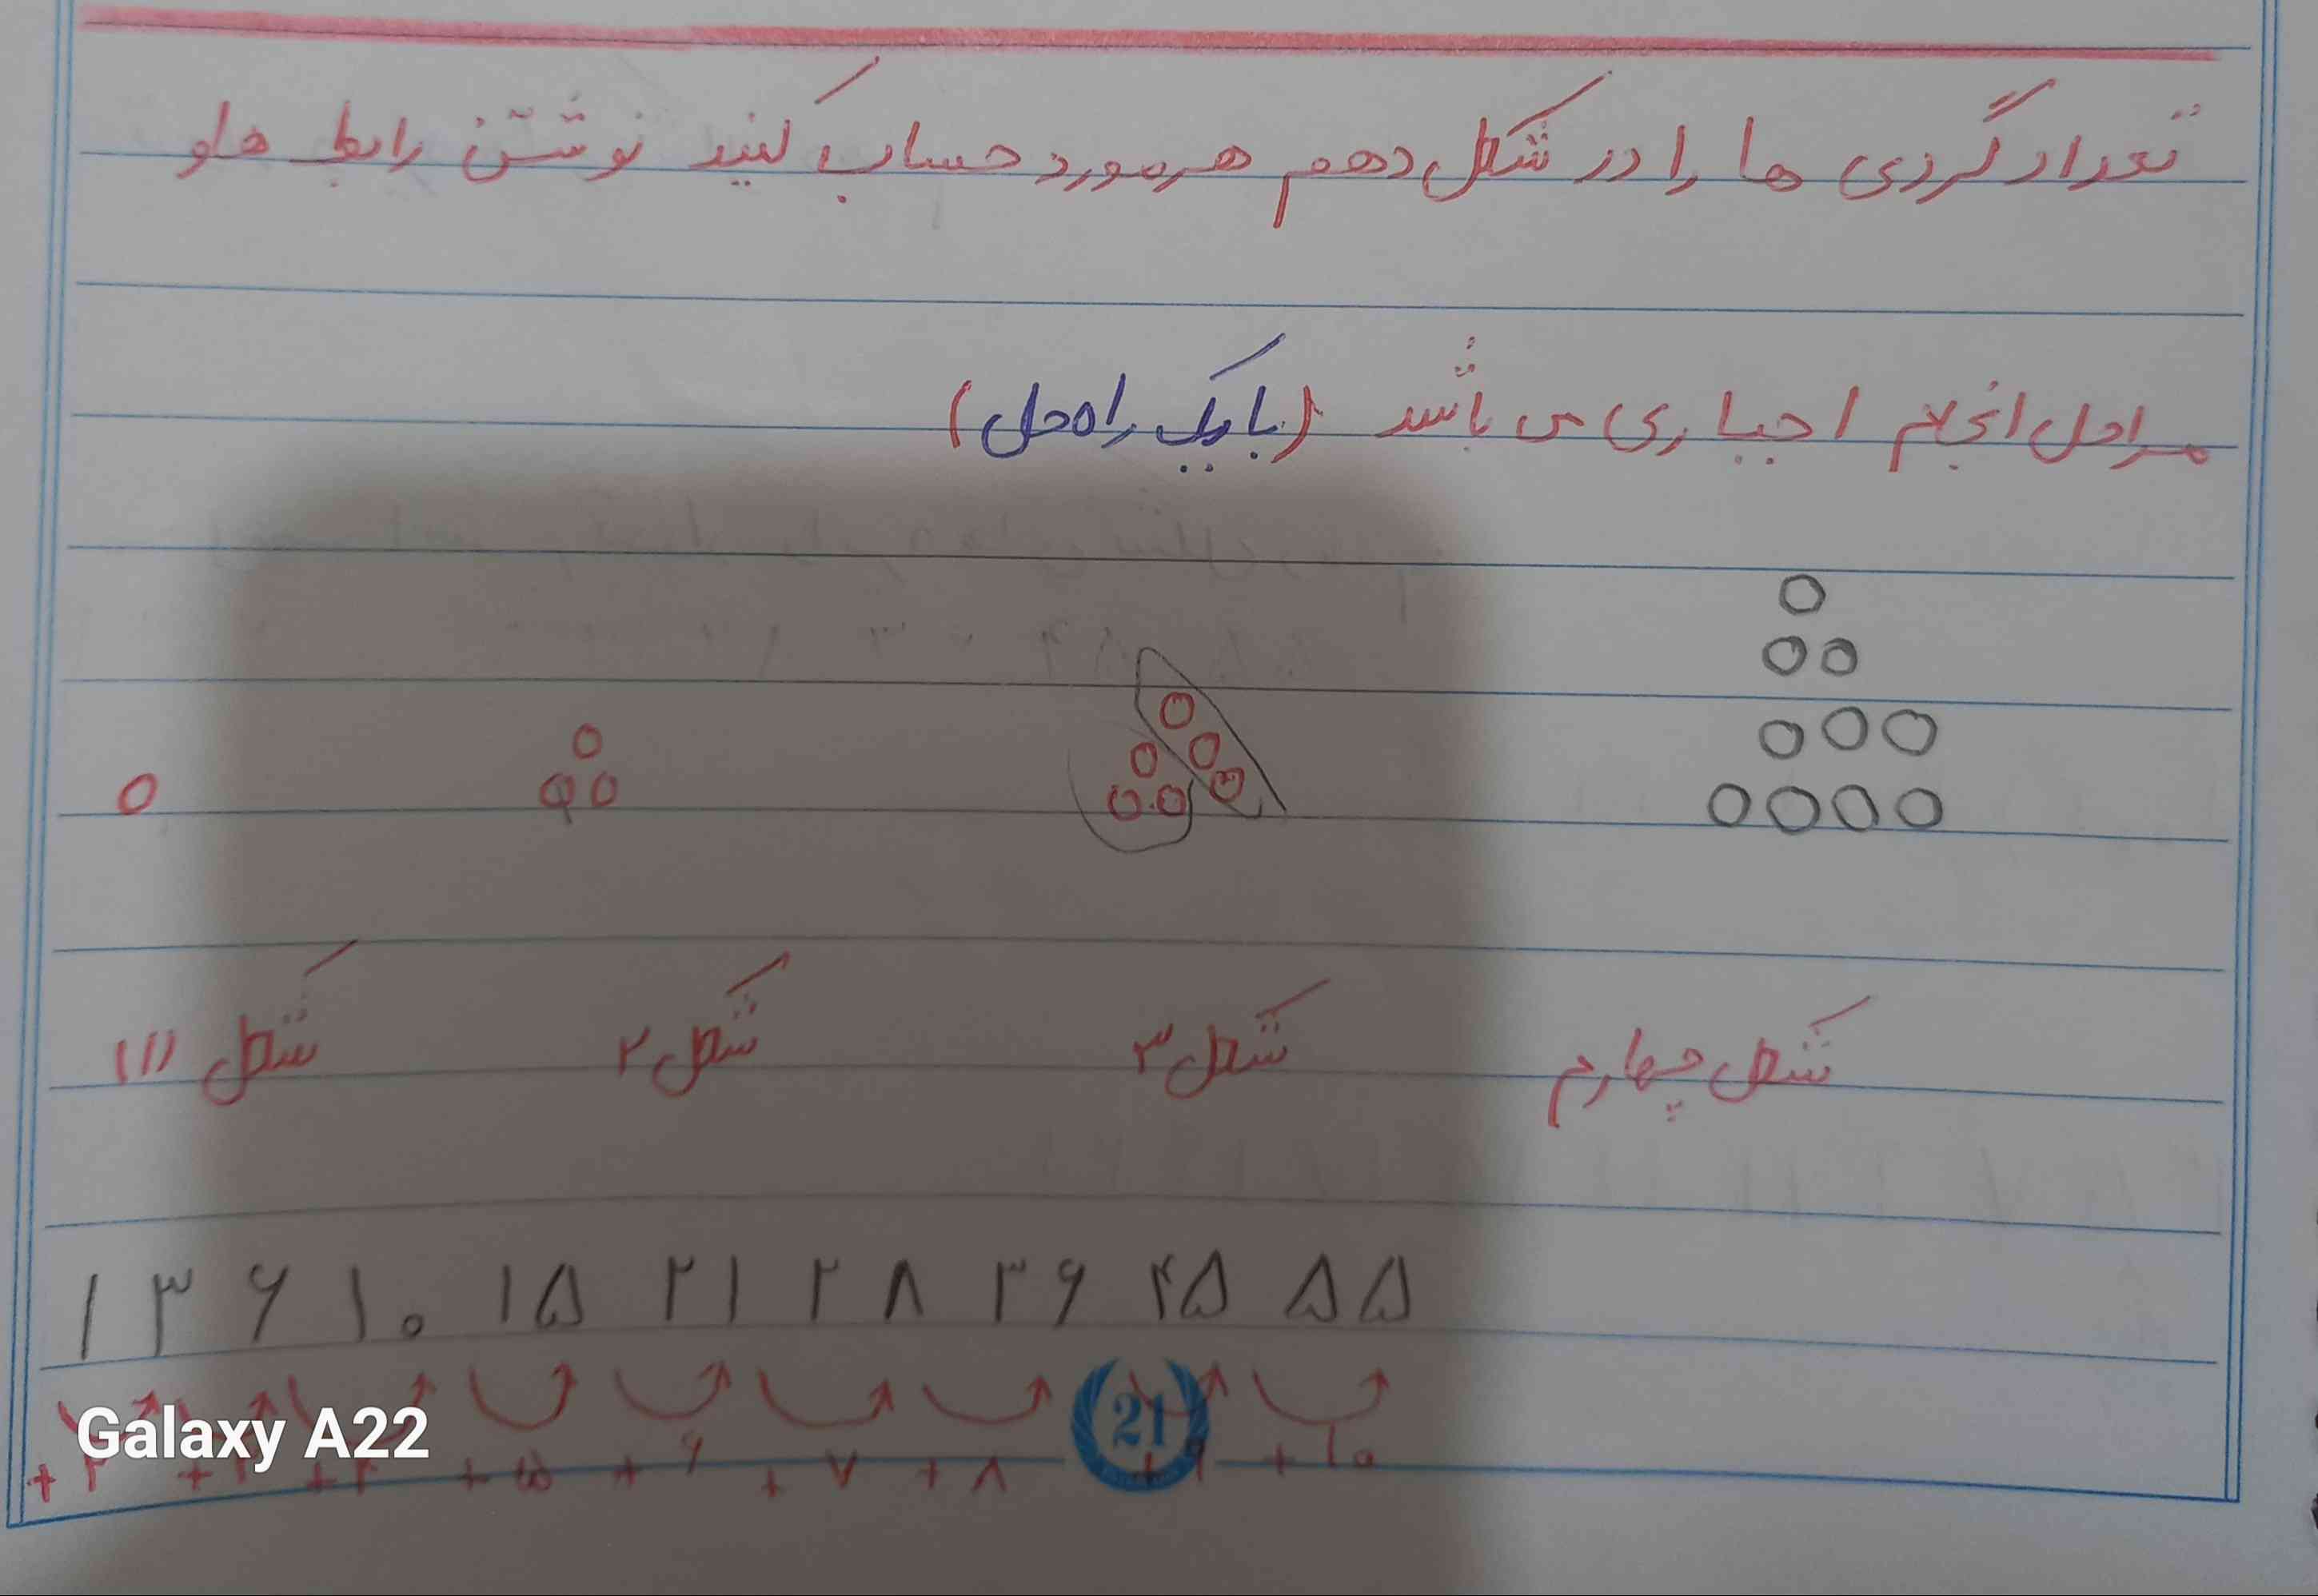 تعداد گردی ها را در شکل دهم هر مورد حساب کنید نوشتن رابطه ها و
مراحل انجام اجباری می باشد (با یک راه حل)
شکل (۱) شکل ۲ شکل ۳ شکل چهارم
۱ ۳ ۶ ۱۰ ۱۵ ۲۱ ۲۸ ۳۶ ۴۵ ۵۵
+۲ +۳ +۴ +۵ +۶ +۷ +۸ +۹ +۱۰
21
Galaxy A22